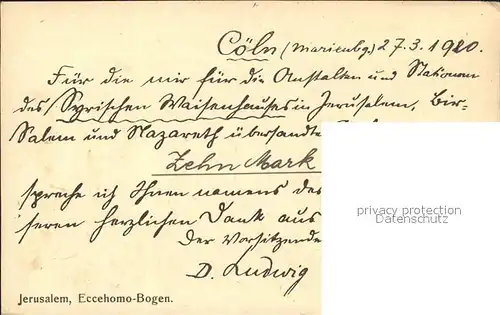 Cöln (Marienbg.) 27.3.1920.
Für die mir für die Anstalten und Stationen
des Syrischen Waisenhauses in Jerusalem, Bir-
Salem und Nazareth übersandte
Zehn Mark
spreche ich Ihnen namens des
seren herzlichen Dank aus
Der Vorsitzende
D. Ludwig
privacy protection
www.oldthing.de
Jerusalem, Eccehomo-Bogen.